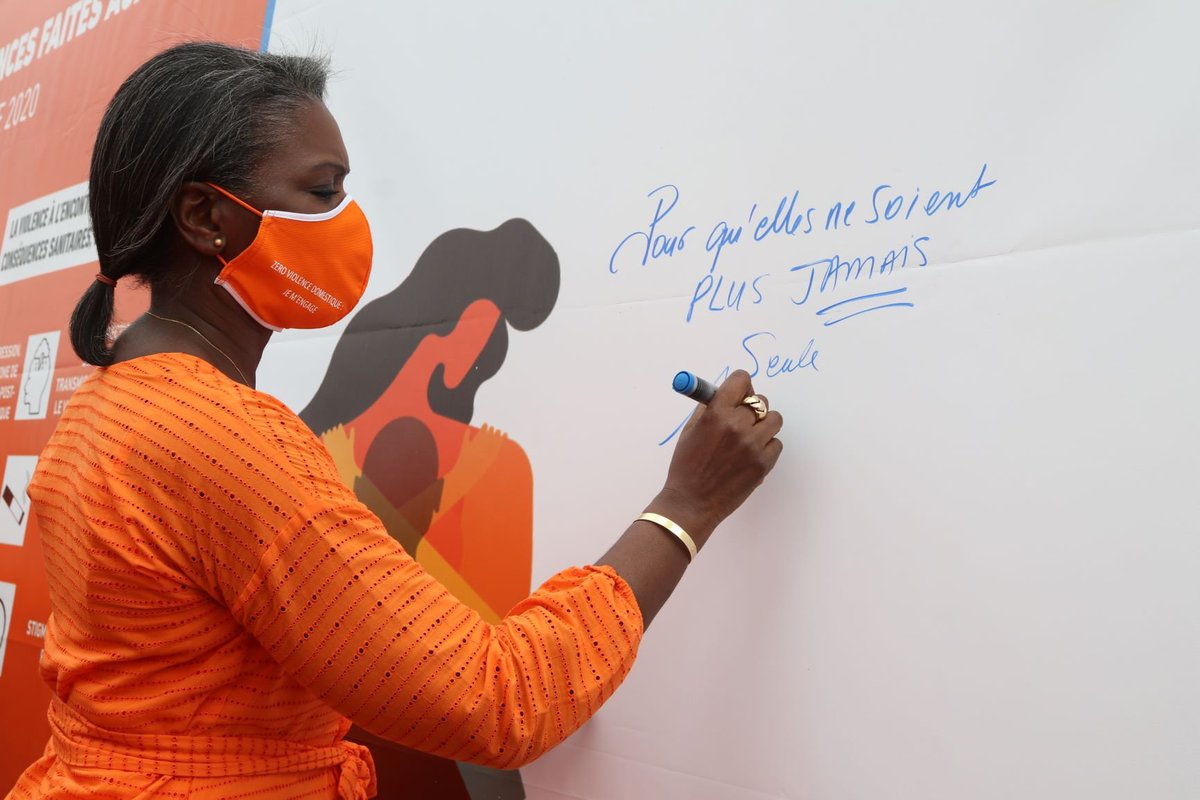 NCES FAITES AU
2020
LA VIOLENCE À L'ENCONT
CONSÉQUENCES SANITAIRES
RESSION,
NE DE
POST-
QUE
TRANSM
LE V
STIG
ZÉRO VIOLENCE DOMESTIQUE :
JE M'ENGAGE
Pour qu'elles ne soient
PLUS JAMAIS
Seule